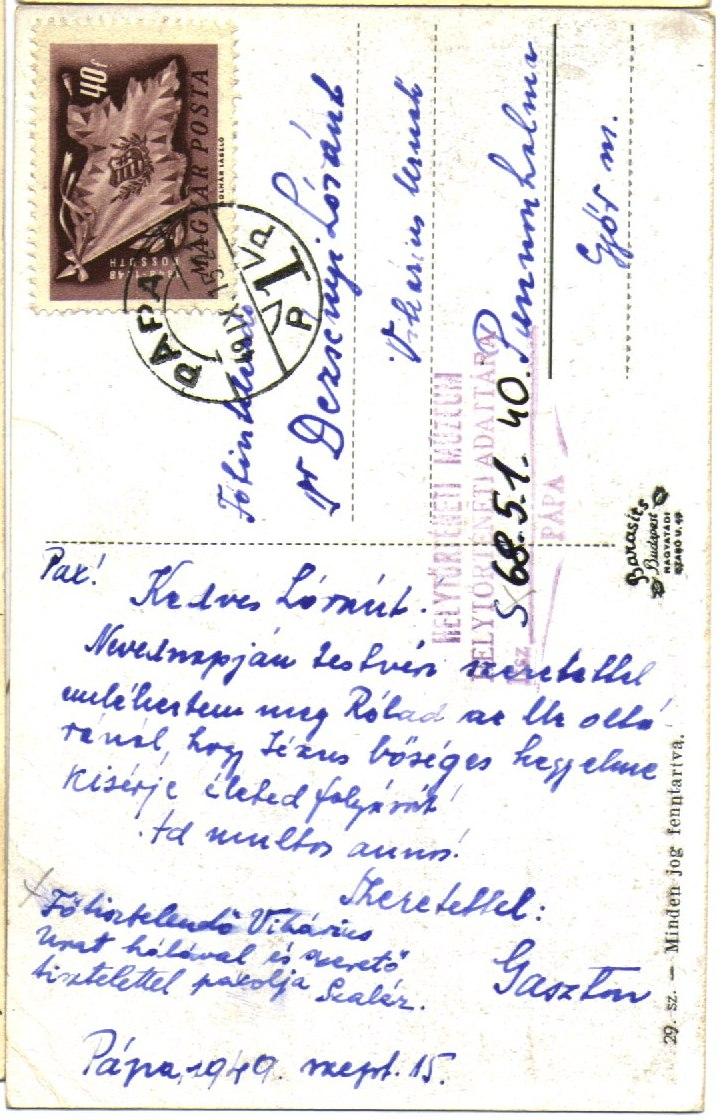 40f
MAGYAR POSTA
1848-1948
KOSSUTH
PÁPA
Főtisztelendő
Dr Dezsényi Lóránt
Vikárius Úrnak
Pannonhalma
Győr m.
HELYTÖRTÉNETI MÚZEUM
HELYTÖRTÉNETI ADATTÁRA
S 68.5.1. 40.
PÁPA
Barasits
Budapest
NAGYATÁDI
SZABÓ U. 49
Pax!
Kedves Lóránt.
Nevednapján testvéri szeretettel
emlékeztem meg Rólad az Úr oltá-
ránál, hogy Jézus bőséges kegyelme
kisérje életed folyását!
Ad multos annos!
Szeretettel:
Gaszton
Főtisztelendő Vikárius
Urat hálával és szerető
tisztelettel
Pápa, 1949. szept. 15.
29. sz. — Minden jog fenntartva.